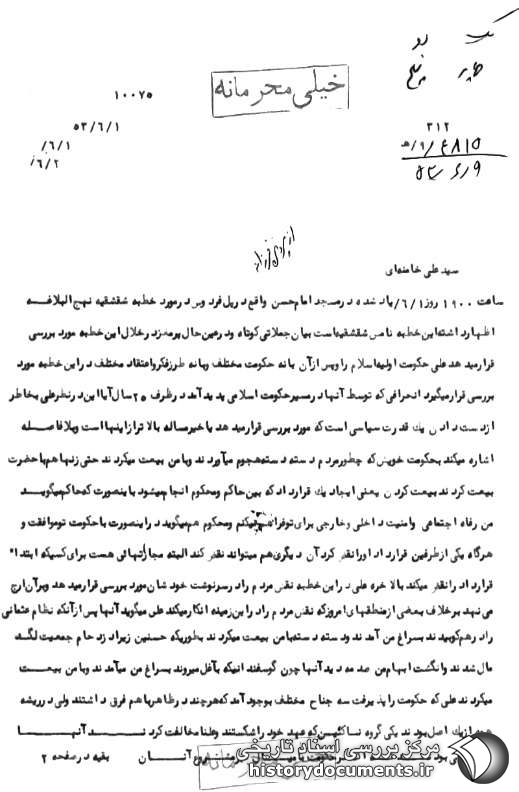 خیلی محرمانه
۱۰۰۷۵
۵۳/۶/۱
۳۱۲
/۶/۱
/۶/۲
سید علی خامنه‌ای
ساعت ۱۹۰۰ روز ۶/۱/ یاد شده در مسجد امام حسن واقع در پل فردوس در مورد خطبه شقشقیه نهج البلاغه
اظهار داشته این خطبه نامش شقشقیه است بیان جملاتی کوتاه ودرعین حال پرمغز درخلال این خطبه مورد بررسی
قرار میدهد علی حکومت اولیه اسلام را وپس از آن بانه حکومت مختلف وبانه طرز فکر واعتقاد مختلف در این خطبه مورد
بررسی قرار میگیرد انحرافی که توسط آنها در مسیر حکومت اسلامی پدید آمد در ظرف ۲۵ سال آیا این در نظر علی بخاطر
از دست دادن یك قدرت سیاسی است که مورد بررسی قرار میدهد یا خیر مساله بالاتر از اینها است وبلافاصله
اشاره میکند بحکومت خویش که چطور مردم دسته دسته هجوم میآوردند وبا من بیعت میکردند حتی زنها هم با حضرت
بیعت کردند بیعت کردن یعنی ایجاد یك قرارداد که بین حاکم ومحکوم انجام میشود باینصورت که حاکم میگوید
من رفاه اجتماعی وامنیت داخلی وخارجی برای تو فراهم میکنم ومحکوم هم میگوید در اینصورت با حکومت تو موافقت و
هرگاه یکی از طرفین قرارداد اورا نقض کرد آن دیگری هم میتواند نقض کند البته مجازاتهائی هست برای کسیکه ابتدا"
قرارداد را نقض میکند بالاخره علی در این خطبه نقش مردم را در سرنوشت خودشان مورد بررسی قرار میدهد وبرآن ارج
می نهد برخلاف بعضی از منطقهای امروز که نقش مردم را در این زمینه انکار میکند علی میگوید آنها پس از آنکه نظام عثمانی
را درهم کوبیدند بسراغ من آمدند ودسته دسته با من بیعت میکردند بطوریکه حسنین زیر ازدحام جمعیت لگد
مال شدند وانگشت ابهام من صدمه دید آنها چون گوسفندانیکه بآغل میروند بسراغ من میآمدند وبا من بیعت
میکردند علی که حکومت را پذیرفت سه جناح مختلف بوجود آمد که هرچند در ظاهر باهم فرق داشتند ولی در ریشه
همه از یك اصل بودند یکی گروه ناکثین که عهد خود را شکستند وعلنا مخالفت کردند آنها
بقیه در صفحه ۲
خیلی محرمانه
مرکز بررسی اسناد تاریخی
historydocuments.ir